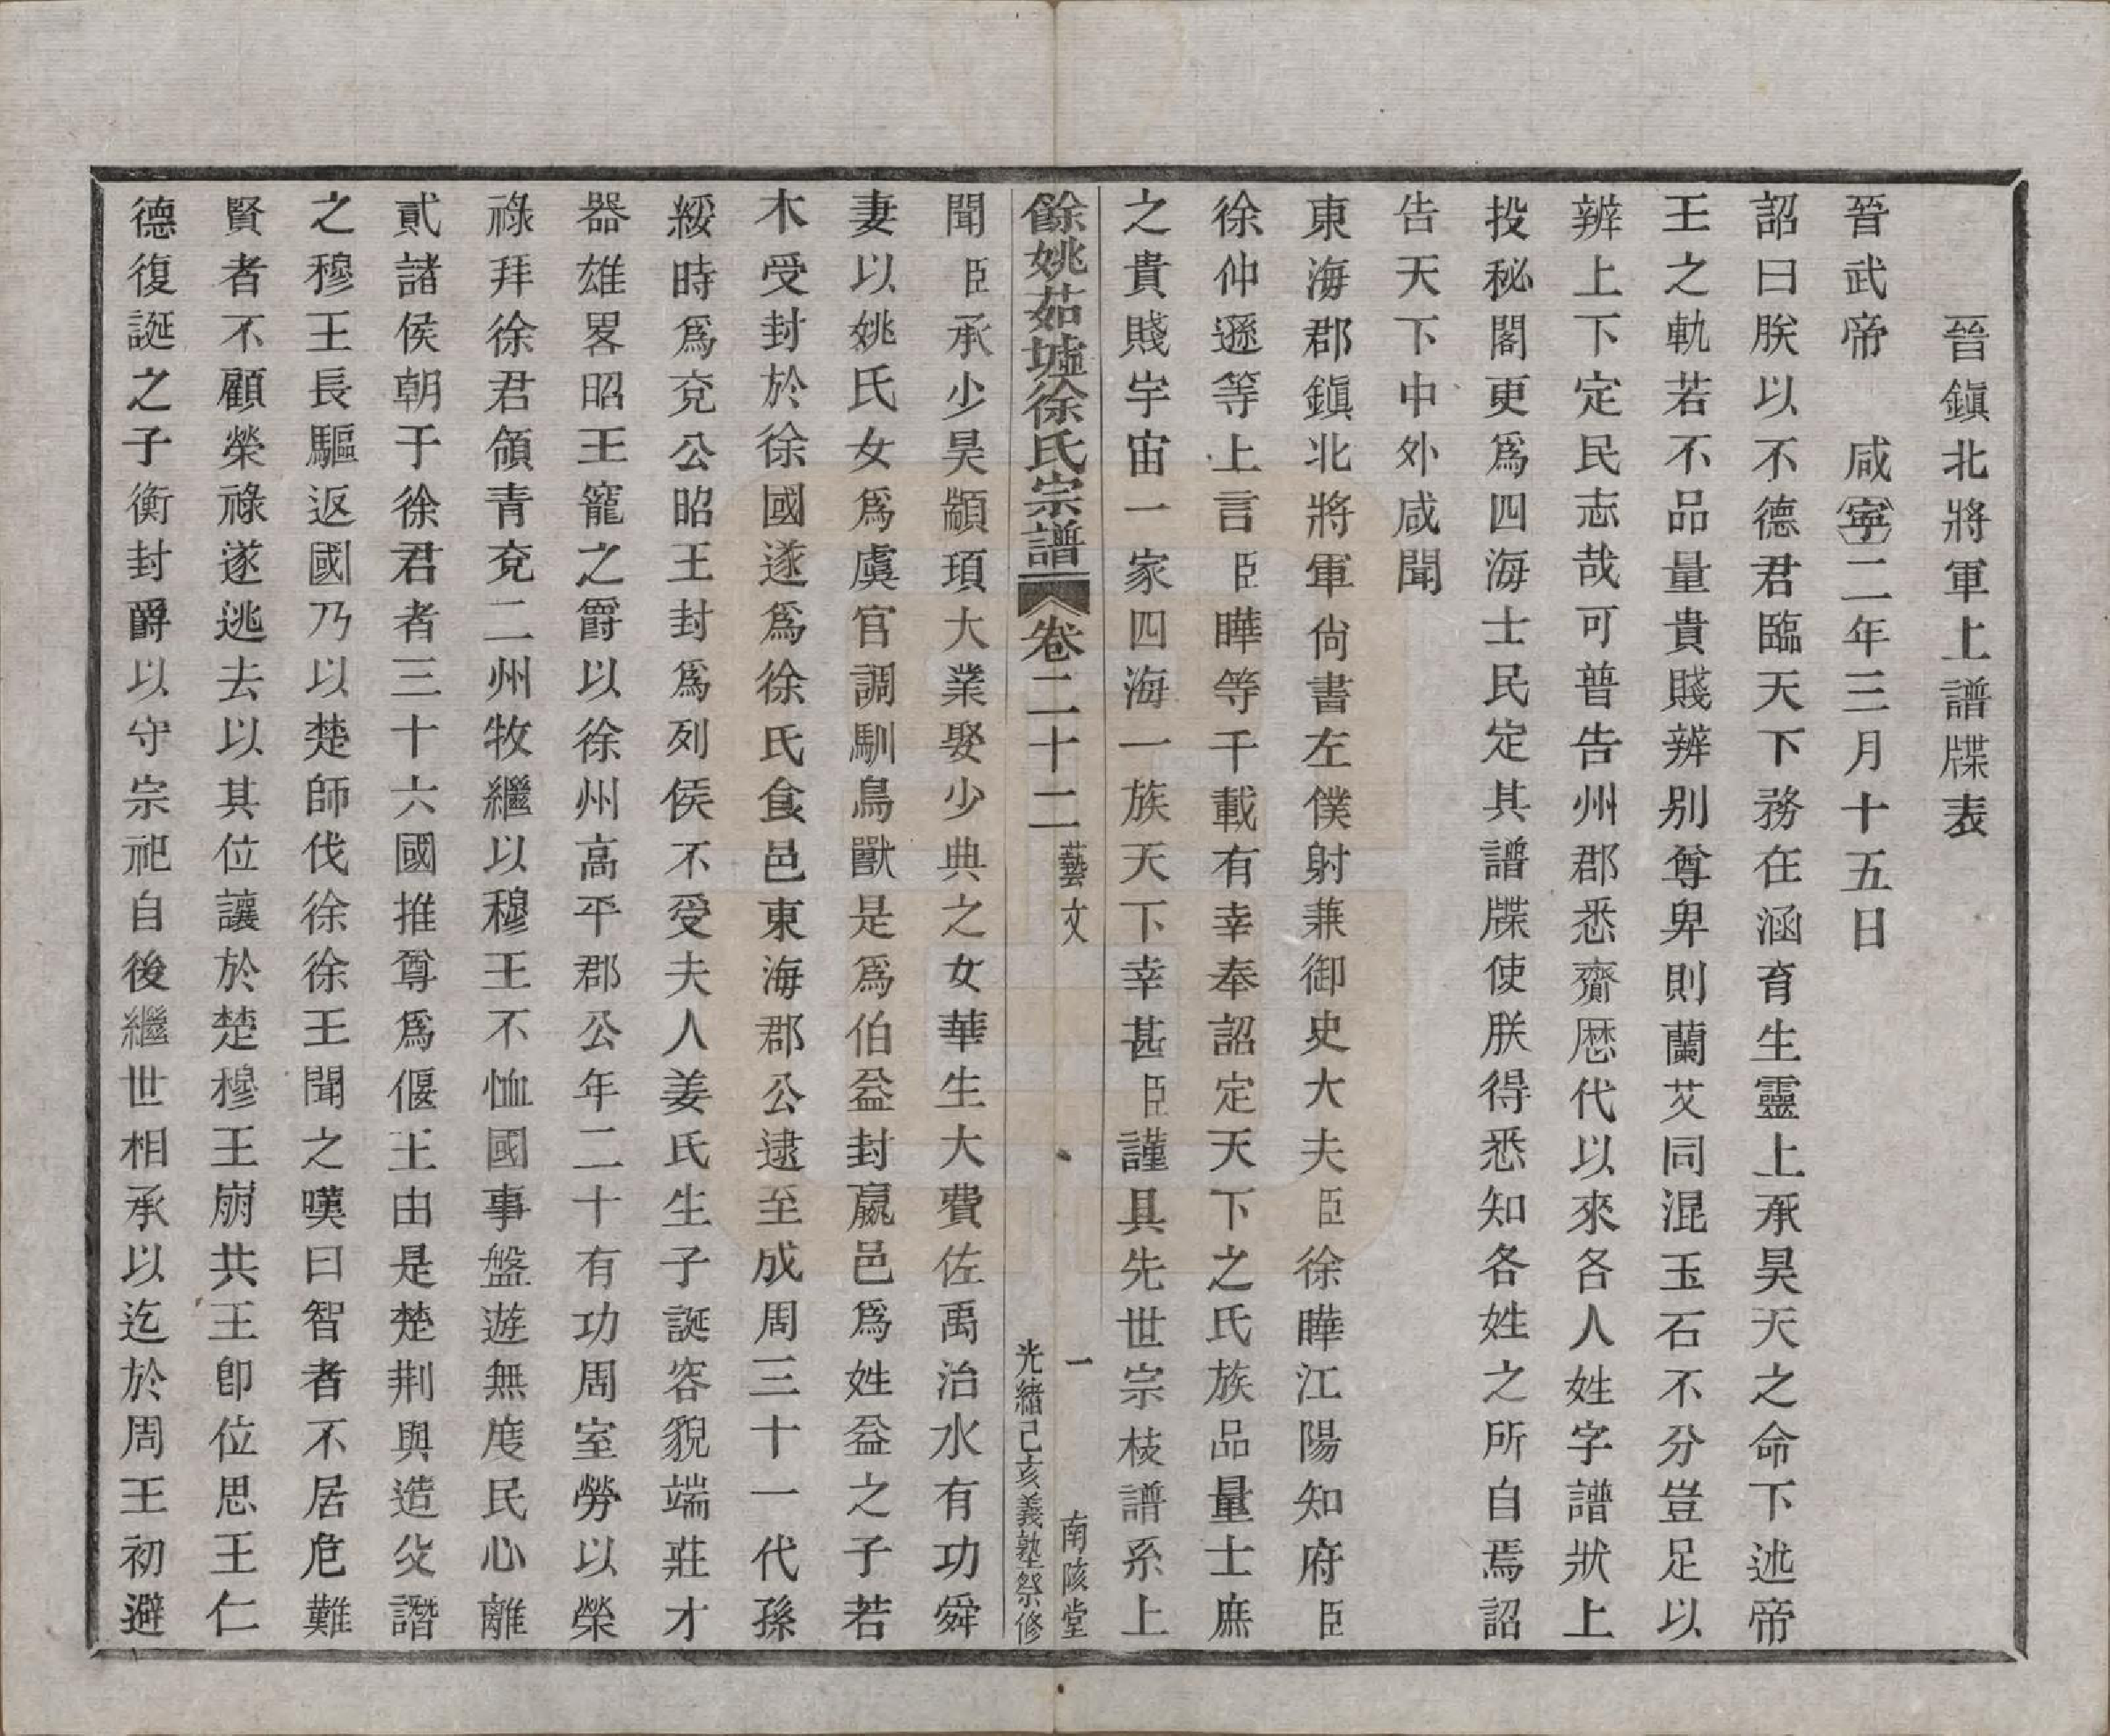 晉鎮北將軍上譜牒表
晉武帝　咸寧二年三月十五日
詔曰朕以不德君臨天下務在涵育生靈上承昊天之命下述帝
王之軌若不品量貴賤辨别尊卑則蘭艾同混玉石不分豈足以
辨上下定民志哉可普告州郡悉齎厯代以來各人姓字譜狀上
投秘閣更爲四海士民定其譜牒使朕得悉知各姓之所自焉詔
告天下中外咸聞
東海郡鎮北將軍尙書左僕射兼御史大夫臣徐曄江陽知府臣
徐仲遜等上言臣曄等千載有幸奉詔定天下之氏族品量士庶
之貴賤宇宙一家四海一族天下幸甚臣謹具先世宗枝譜系上
餘姚茹墟徐氏宗譜　卷二十二　藝文　一　南陔堂　光緒己亥義塾祭修
聞臣承少昊顓頊大業娶少典之女華生大費佐禹治水有功舜
妻以姚氏女爲虞官調馴鳥獸是爲伯益封嬴邑爲姓益之子若
木受封於徐國遂爲徐氏食邑東海郡公逮至成周三十一代孫
綏時爲兗公昭王封爲列侯不受夫人姜氏生子誕容貌端莊才
器雄畧昭王寵之爵以徐州高平郡公年二十有功周室勞以榮
祿拜徐君領青兗二州牧繼以穆王不恤國事盤遊無度民心離
貳諸侯朝于徐君者三十六國推尊爲偃王由是楚荆與造父譖
之穆王長驅返國乃以楚師伐徐徐王聞之嘆曰智者不居危難
賢者不顧榮祿遂逃去以其位讓於楚穆王崩共王卽位思王仁
德復誕之子衡封爵以守宗祀自後繼世相承以迄於周王初避